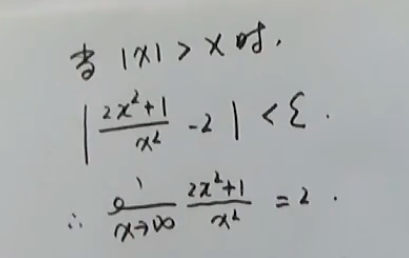 当 |x| > X 时,
| \frac{2x^2+1}{x^2} - 2 | < ε .
∴ \lim_{x→∞} \frac{2x^2+1}{x^2} = 2 .